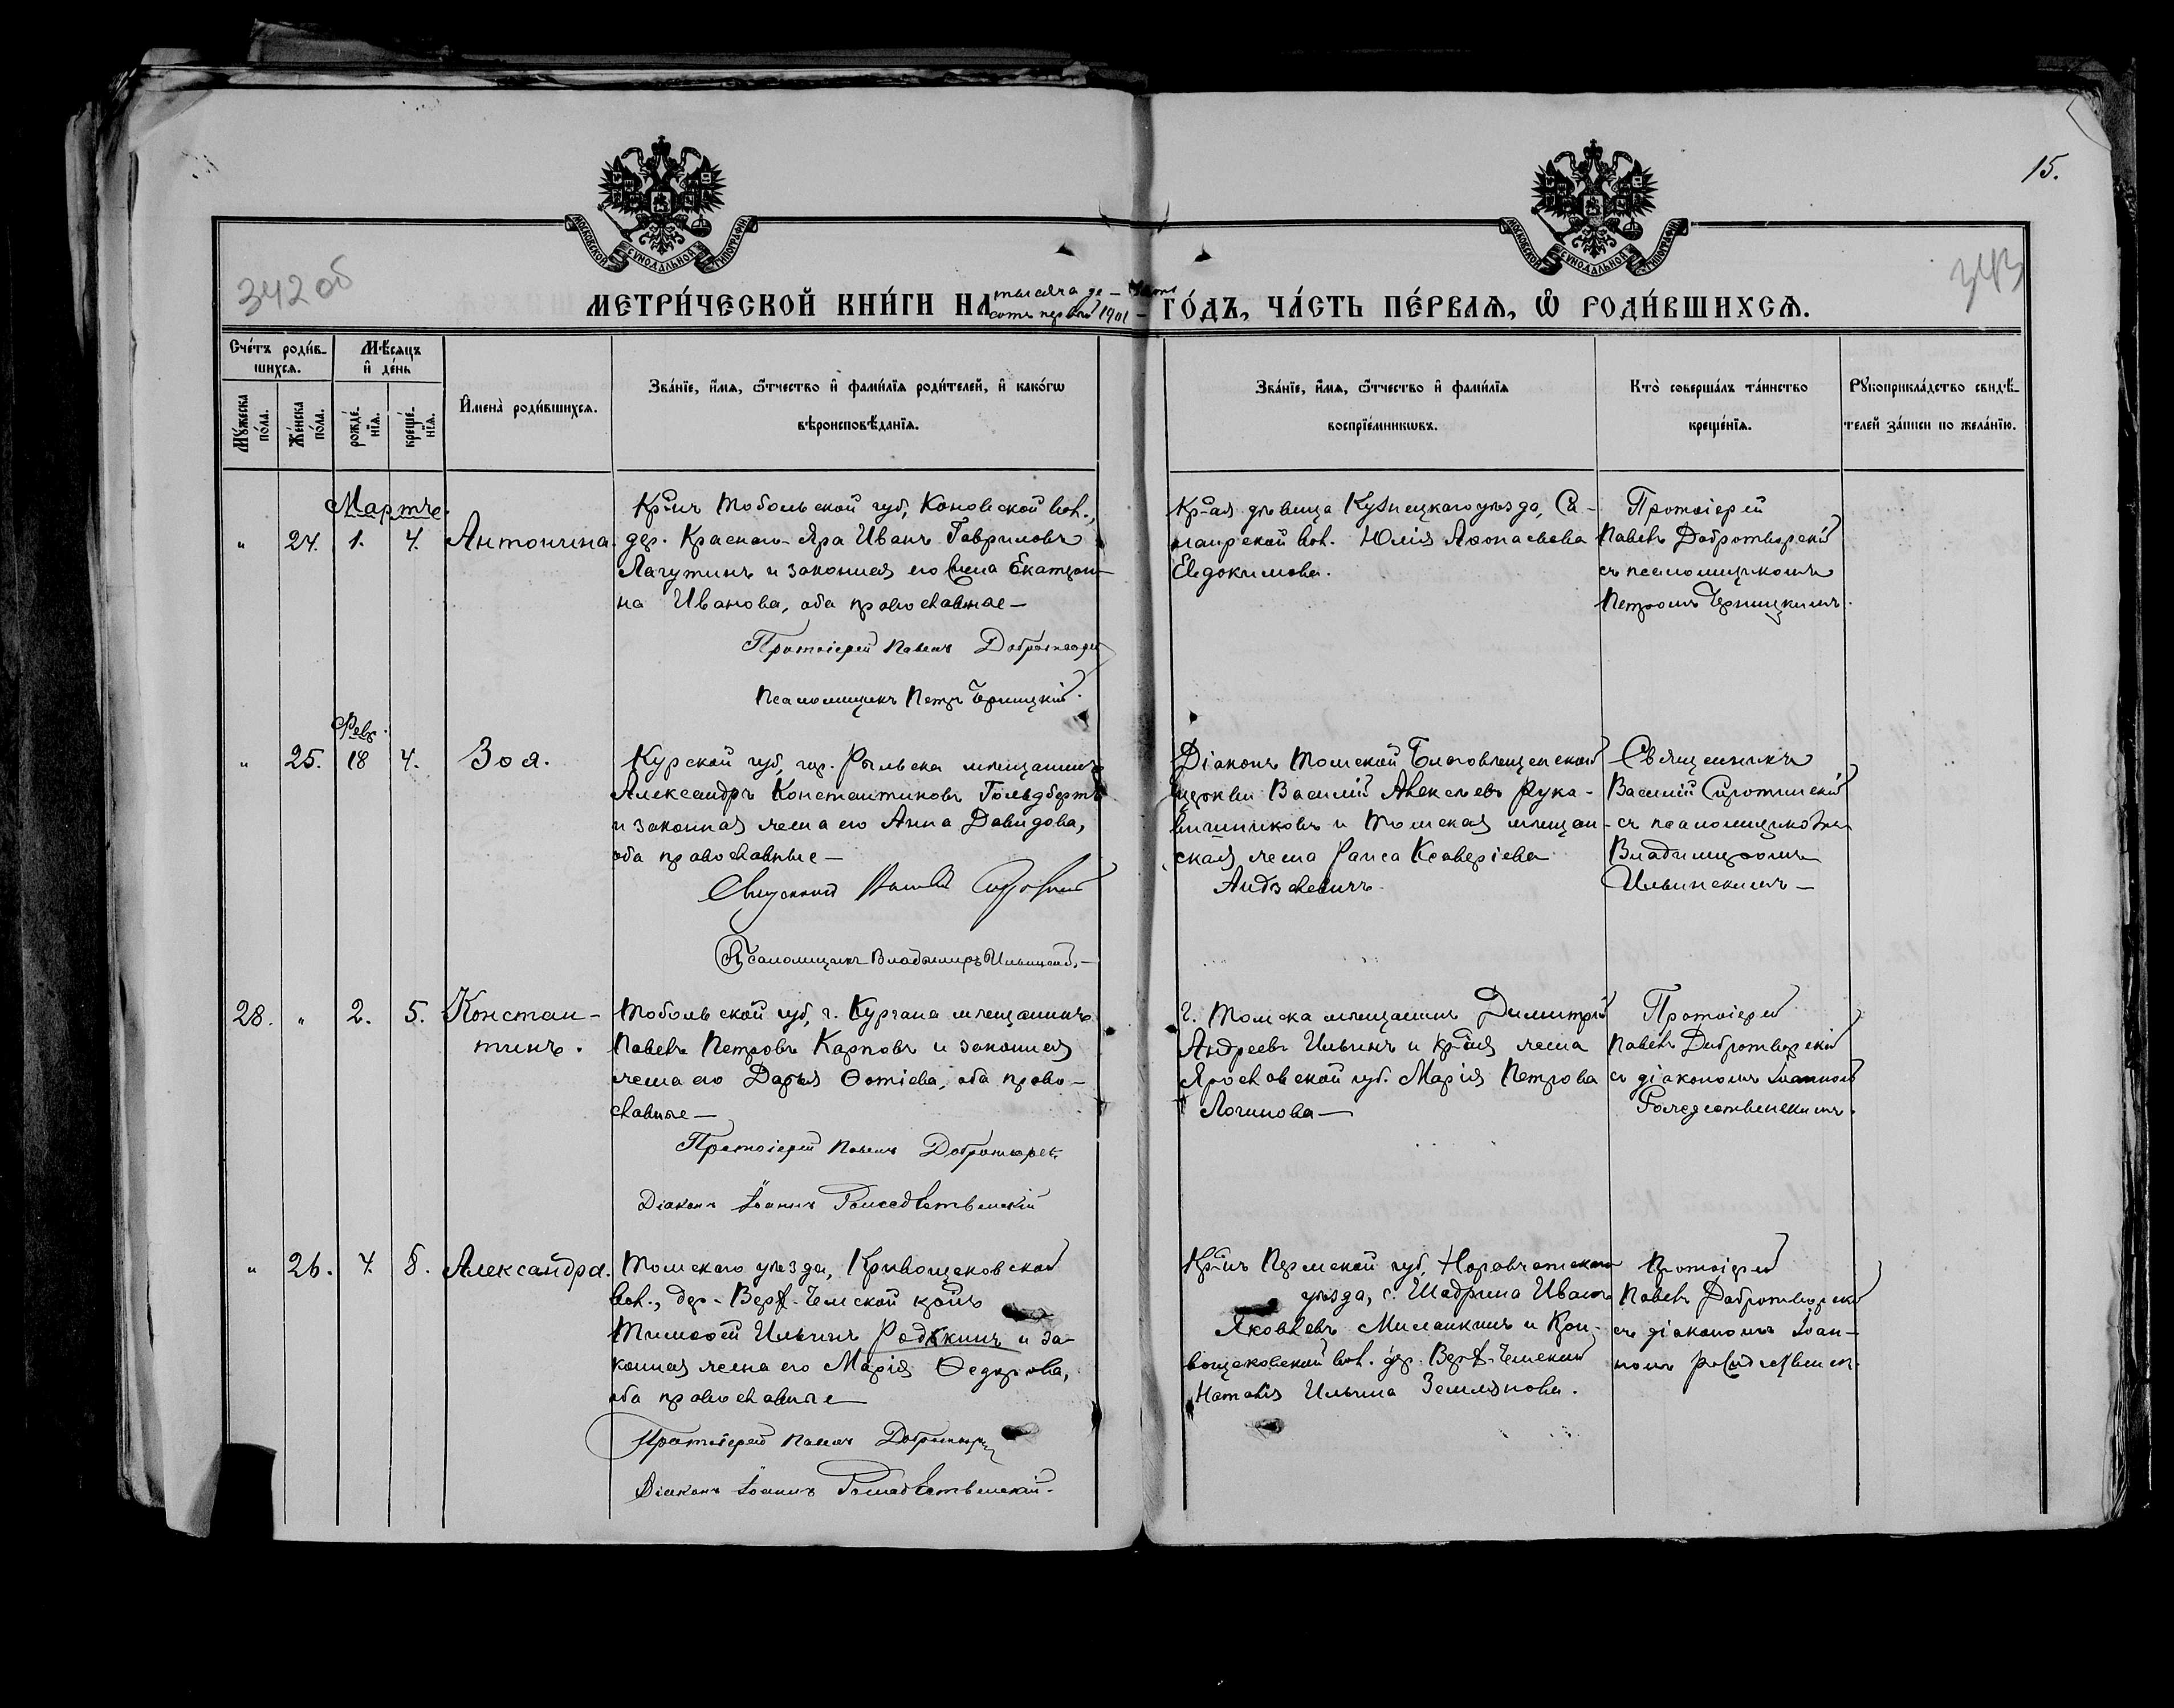 15.
342об
343
МОСКОВСКОЙ СѴНОДАЛЬНОЙ ТИПОГРАФІИ
МОСКОВСКОЙ СѴНОДАЛЬНОЙ ТИПОГРАФІИ
МЕТРИ́ЧЕСКОЙ КНИ́ГИ НА тысяча де-вять
сотъ первый 1901 - ГО́ДЪ, ЧА́СТЬ ПЕ́РВАѦ, Ѡ҆ РОДИ́ВШИХСѦ.
Сче́тъ роди́в-
шихсѧ.
Мѣ́сѧцъ
и҆ де́нь
Мꙋ́жеска
по́ла.
Же́нска
по́ла.
рожде́-
нїѧ.
креще́-
нїѧ.
И҆мена̀ роди́вшихсѧ.
Зва́нїе, и҆́мѧ, ѻ҆́тчество и҆ фами́лїѧ роди́телей, и҆ како́гѡ
вѣроисповѣ́данїѧ.
Зва́нїе, и҆́мѧ, ѻ҆́тчество и҆ фами́лїѧ
воспрїе́мникѡвъ.
Кто̀ соверша́лъ та́инство
креще́нїѧ.
Рꙋкоприкла́дство свидѣ́-
телей за́писи по жела́нїю.
Мартъ.
" 24. 1. 4. Антонина.
Кр-инъ Тобольской губ, Коновской вол.,
дер. Краснаго-Яра Иванъ Гавриловъ
Лагутинъ и законная его жена Екатери-
на Иванова, оба православные —
Протоіерей Павелъ Добротворскій
Псаломщикъ Петръ Черницкій.
Кр-ая дѣвица Кузнецкаго уѣзда, Са-
лаирской вол. Юлія Аѳонасьева
Евдокимова.
Протоіерей
Павелъ Добротворскій
съ псаломщикомъ
Петромъ Черницкимъ.
Февр.
" 25. 18 4. Зоя.
Курской губ, гор. Рыльска мѣщанинъ
Александръ Константиновъ Гольдбертъ
и законная жена его Анна Давидова,
оба православные —
Священникъ Василій Сиротинскій
Псаломщикъ Владимиръ Ильинскій. —
Діаконъ Томской Благовѣщенской
церкви Василій Алексѣевъ Рука-
вишниковъ и Томская мѣщан-
ская жена Раиса Ксаверіева
Андзелевичъ.
Священникъ
Василій Сиротинскій
съ псаломщикомъ
Владимиромъ
Ильинскимъ —
28. " 2. 5. Констан-
тинъ.
Тобольской губ, г. Кургана мѣщанинъ
Павелъ Петровъ Карповъ и законная
жена его Дарья Ѳотіева, оба право-
славные —
Протоіерей Павелъ Добротворск.
Діаконъ Іоаннъ Рождественскій
г. Томска мѣщанинъ Димитрій
Андреевъ Ильинъ и кр-ая жена
Ярославской губ. Марія Петрова
Логинова —
Протоіерей
Павелъ Добротворскій
съ діакономъ Іоанномъ
Рождественскимъ.
" 26. 4. 8. Александра.
Томскаго уѣзда, Кривощековской
вол., дер. Верх-Чемской кр-нъ
Тимоѳей Ильинъ Родькинъ и за-
конная жена его Марія Ѳедорова,
оба православные —
Протоіерей Павелъ Добротворск
Діаконъ Іоаннъ Рождественскій.
Кр-инъ Пермской губ, Наровчатскаго
уѣзда, с. Шадрина Иванъ
Яковлевъ Миланкинъ и Кри-
вощековской вол. дер. Верх-Чемской
Наталія Ильина Землянова.
Протоіерей
Павелъ Добротворскій
съ діакономъ Іоан-
номъ Рождественск.